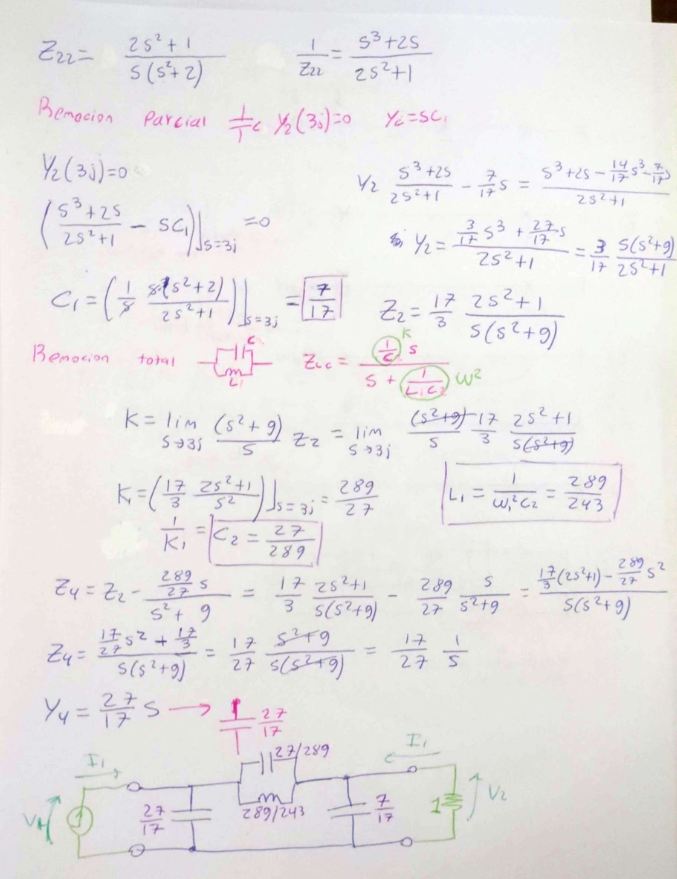 Z22 = (2s²+1)/(s(s²+2))    1/Z22 = (s³+2s)/(2s²+1)
Remocion Parcial C Y2(3j)=0 Yc=sC1
Y2(3j)=0
((s³+2s)/(2s²+1) - sC1)|s=3j =0
C1 = (1/s s(s²+2)/(2s²+1))|s=3j = 7/17
Y2 (s³+2s)/(2s²+1) - 7/17 s = (s³+2s - 14/17 s³ - 7/17 s)/(2s²+1)
Y2 = (3/17 s³ + 27/17 s)/(2s²+1) = 3/17 s(s²+9)/(2s²+1)
Z2 = 17/3 (2s²+1)/(s(s²+9))
Remocion total C L1 ZLC = (1/C s)/(s + 1/(L1C2)) K W²
K = lim s→3j (s²+9)/s Z2 = lim s→3j (s²+9)/s 17/3 (2s²+1)/(s(s²+9))
K1 = (17/3 (2s²+1)/s²)|s=3j = 289/27
L1 = 1/(W1²C2) = 289/243
1/K1 = C2 = 27/289
Z4 = Z2 - (289/27 s)/(s²+9) = 17/3 (2s²+1)/(s(s²+9)) - 289/27 s/(s²+9) = (17/3 (2s²+1) - 289/27 s²)/(s(s²+9))
Z4 = (17/27 s² + 17/3)/(s(s²+9)) = 17/27 (s²+9)/(s(s²+9)) = 17/27 1/s
Y4 = 27/17 s → 27/17
I1 27/289 I1
27/17 289/243 7/17 1 V2